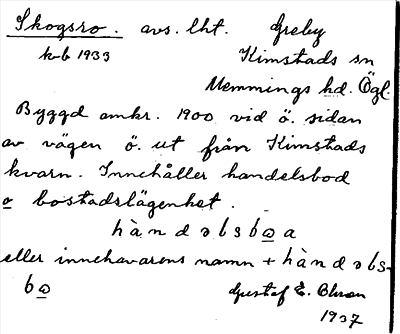 Skogsro. avs. lht. Greby
kb 1933 Kimstads sn
Memmings hd. Ögl.
Byggd omkr. 1900 vid ö. sidan
av vägen ö. ut från Kimstads
kvarn. Innehåller handelsbod
o bostadslägenhet.
hàndəlsbo̲a
eller innehavarens namn + hàndəls-
bo̲ Gustaf E. Olsson
1937